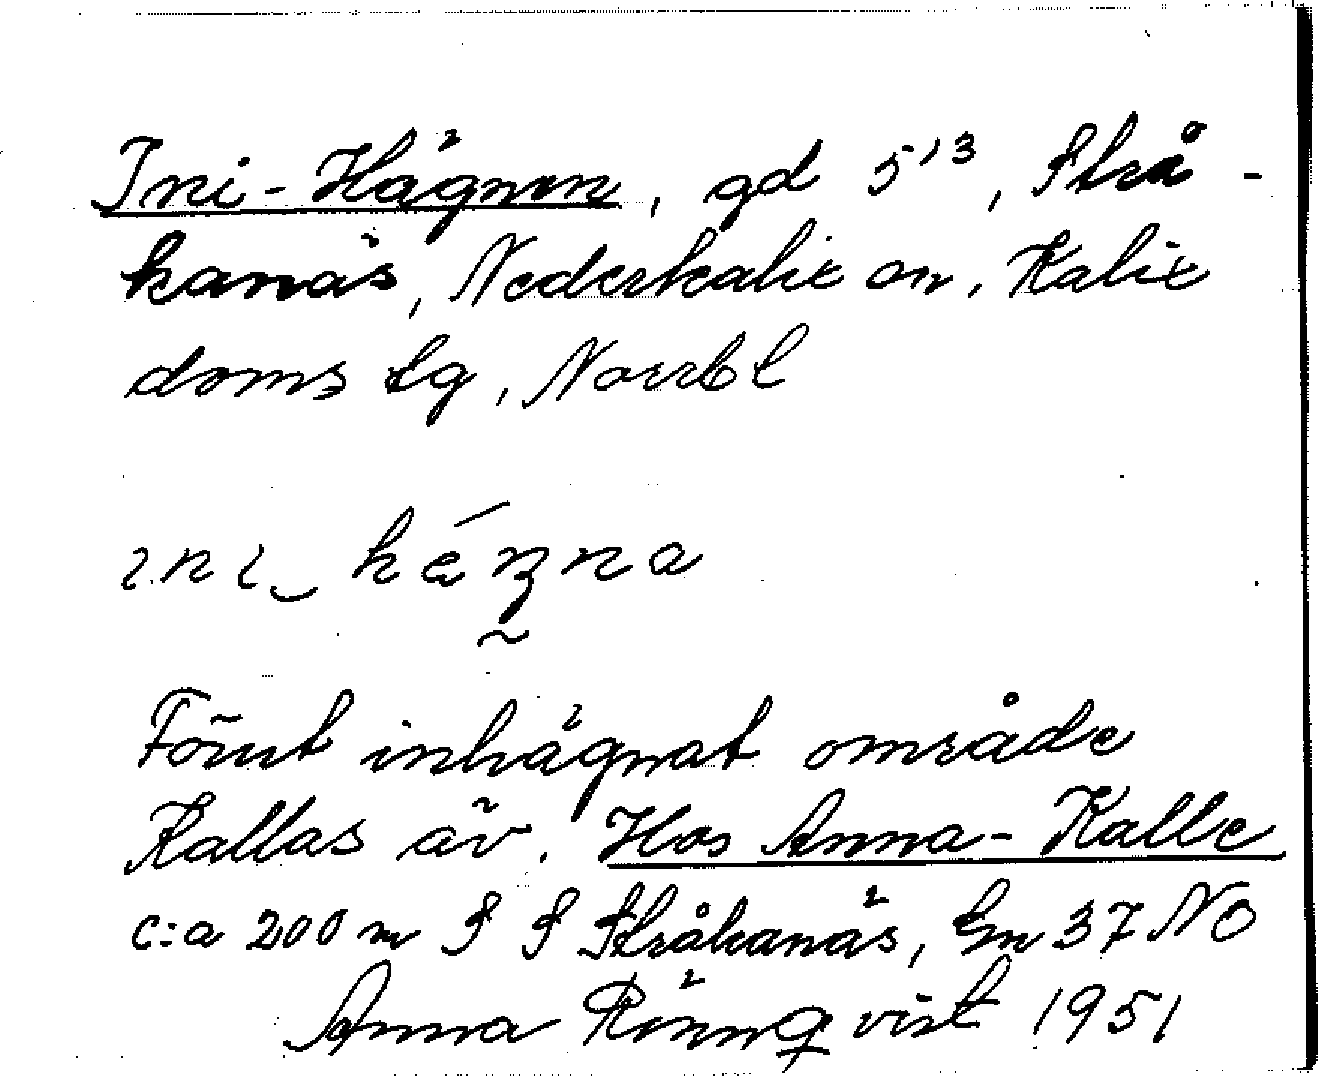 Ini-Hägnen, gd 5¹³, Strå-
kanäs, Nederkalix sn, Kalix
doms lg, Norrbl
ini hégna
Förut inhägnat område
Kallas äv. Hos Anna-Kalle
c:a 200 m S S Stråkanäs, Gn 37 NO
Anna Rönnqvist 1951